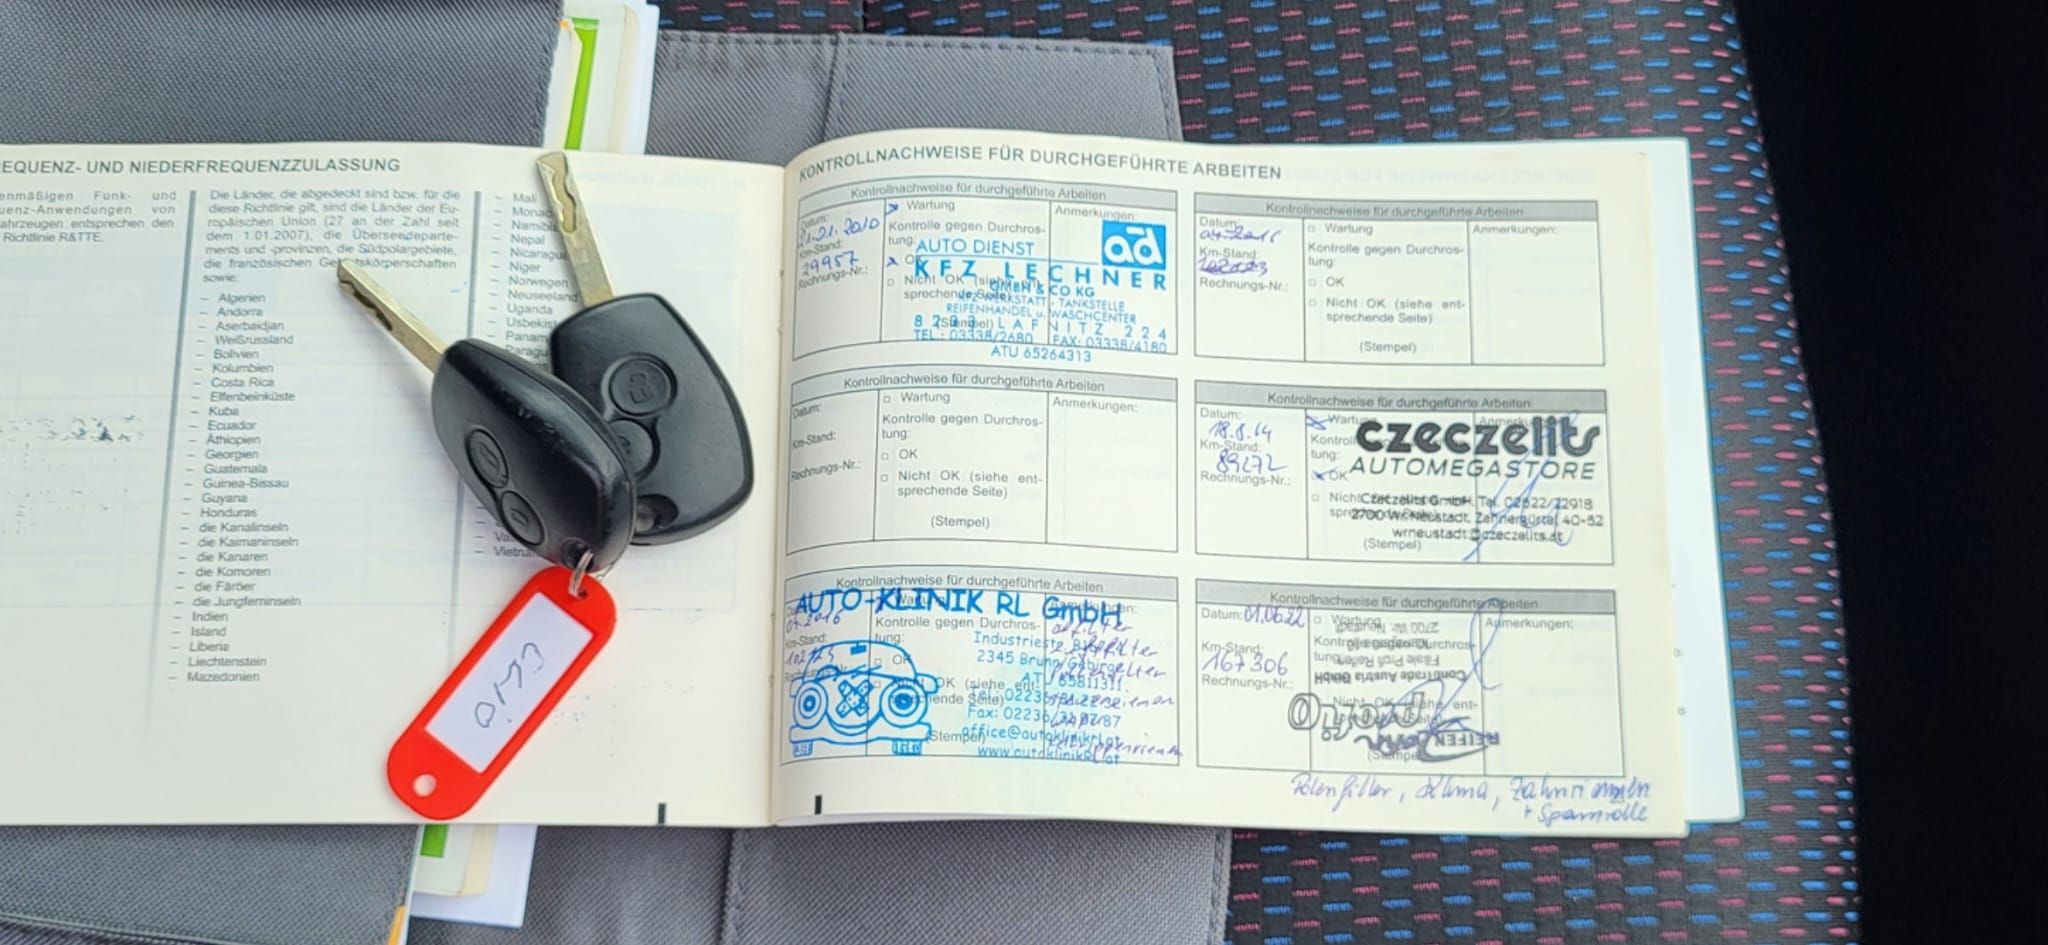 EQUENZ- UND NIEDERFREQUENZZULASSUNG
enmäßigen Funk- und
uenz-Anwendungen von
ahrzeugen entsprechen den
Richtlinie R&TTE.
Die Länder, die abgedeckt sind bzw. für die
diese Richtlinie gilt, sind die Länder der Eu-
ropäischen Union (27 an der Zahl seit
dem 1.01.2007), die Überseedeparte-
ments und -provinzen, die Südpolargebiete,
die französischen
sowie:
– Algerien
– Andorra
– Aserbaidjan
– Weißrussland
– Bolivien
– Kolumbien
– Costa Rica
– Elfenbeinküste
– Kuba
– Ecuador
– Äthiopien
– Georgien
– Guatemala
– Guinea-Bissau
– Guyana
– Honduras
– die Kanalinseln
– die Kaimaninseln
– die Kanaren
– die Komoren
– die Färöer
– die Jungferninseln
– Indien
– Island
– Liberia
– Liechtenstein
– Mazedonien
– Mali
– Monac
– Namibia
– Nepal
– Nicaragu
– Niger
– Norwegen
– Neuseeland
– Uganda
– Usbekist
– Panam
Paragu
– Vietnam
KONTROLLNACHWEISE FÜR DURCHGEFÜHRTE ARBEITEN
Kontrollnachweise für durchgeführte Arbeiten
Datum:
21.01.2010
Km-Stand:
29957
Rechnungs-Nr.:
Wartung
Kontrolle gegen Durchros-
tung:
Nicht OK
Anmerkungen:
ad
AUTO DIENST
KFZ LECHNER
GMBH & CO KG
KFZ WERKSTATT - TANKSTELLE
REIFENHANDEL u. WASCHCENTER
LAFNITZ 224
TEL.: 03338/2680 FAX: 03338/4180
ATU 65264313
Kontrollnachweise für durchgeführte Arbeiten
Datum:
04.2016
Km-Stand:
Rechnungs-Nr.:
Wartung
Kontrolle gegen Durchros-
tung:
OK
Nicht OK (siehe ent-
sprechende Seite)
(Stempel)
Anmerkungen:
Kontrollnachweise für durchgeführte Arbeiten
Datum:
Km-Stand:
Rechnungs-Nr.:
Wartung
Kontrolle gegen Durchros-
tung:
OK
Nicht OK (siehe ent-
sprechende Seite)
(Stempel)
Anmerkungen:
Kontrollnachweise für durchgeführte Arbeiten
Datum:
18.8.14
Km-Stand:
89272
Rechnungs-Nr.:
Wartung
tung:
OK
czeczelits
AUTOMEGASTORE
Czeczelits GmbH, Tel. 02622/22918
2700 Wr. Neustadt, Zehnergürtel 40-52
wrneustadt@czeczelits.at
(Stempel)
Kontrollnachweise für durchgeführte Arbeiten
AUTO-KLINIK RL GmbH
04.2016
Km-Stand:
Kontrolle gegen Durchros-
tung:
Industriestr.
2345 Brunn/Gebirge
ATU 65811311
office@autoklinikrl.at
www.autoklinikRL.at
(Stempel)
Kontrollnachweise für durchgeführte Arbeiten
Datum: 01.06.22
Km-Stand:
167306
Rechnungs-Nr.:
Wartung
Anmerkungen:
2700 Wr. Neustadt
Filiale Profi Reifen
ContiTrade Austria GmbH
profi
REIFEN
(Stempel)
Pollenfilter, Klima, Zahnriemen
+ Spannrolle